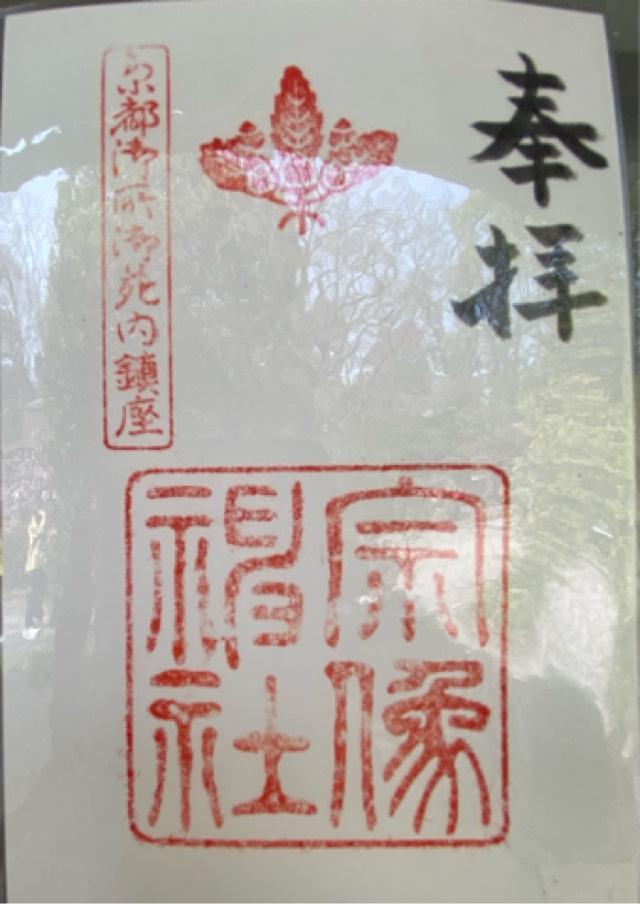 奉拝
京都御所御苑内鎮座
宗像
神社